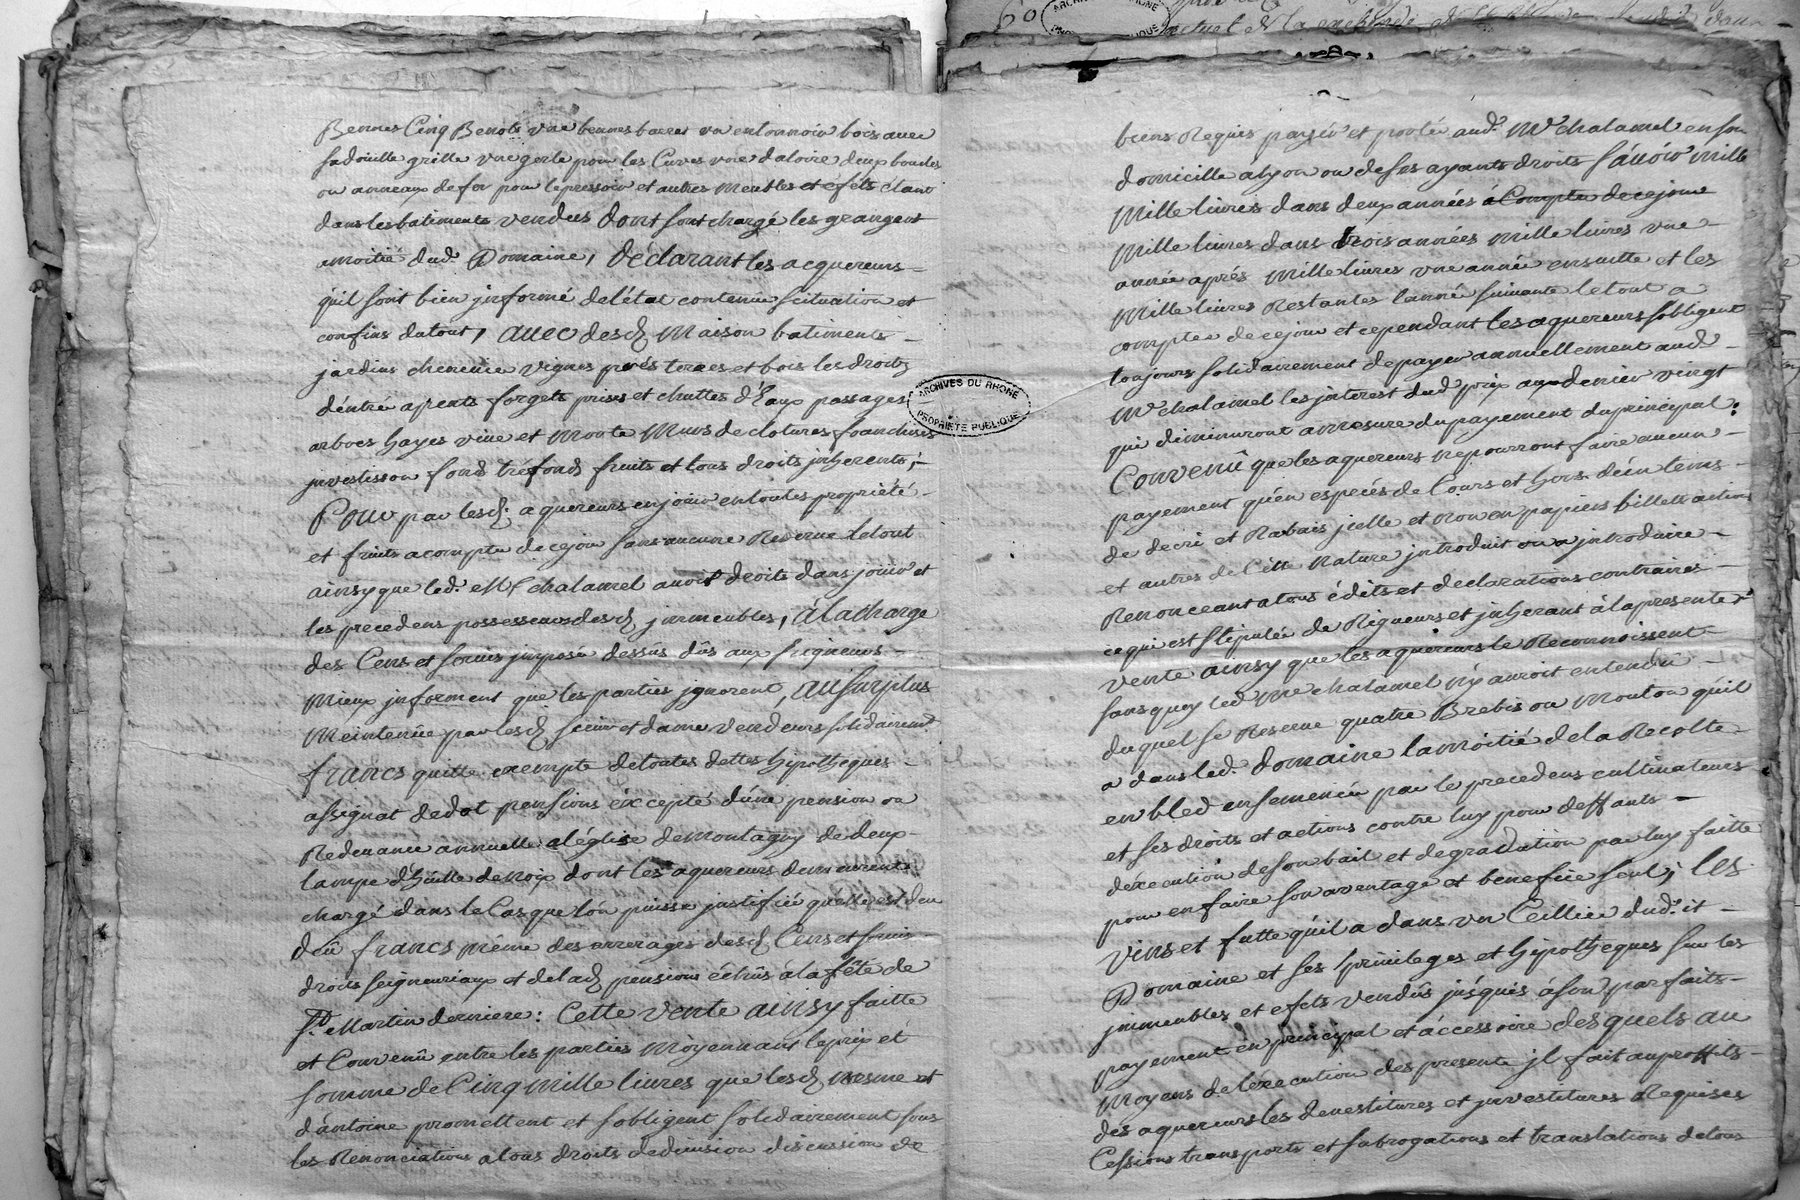 Bennes Cinq Benots une bennes barres un entonnoir bois avec
sadouille grille une gerle pour les Cuves une daloire deux boucles
ou anneaux de fer pour lepressoir et autres meubles et éféts étant
dans les batiments vendus dont sont chargé les grangers
amoitié dud. Domaine, Déclarant les acquereurs
quil sont bien jnformé de létat contenüe scituation et
confins dutout, avec desd. Maison batiments
jardins cheneviere vignes prés terres et bois les droits
déntré apents forgets prises et chuttes d'Eaux passages
arbres hayes vive et Morte Murs de clotures franchises
jnvestisson fonds tréfonds fruits et tous droits jnherents;
Pour par lesd. aquereurs enjouir entoutes propriété
et fruits acompter decejour sans aucune Reserve letout
ainsy que led. Mr chalamel avoit droits dans jouir et
les precedens possesseurs desd. jmmeubles, àlacharge
des Cens et servis jmposés dessus dûs aux seigneurs
Mieux jnforment que les parties jgnorent, ausurplus
Meintenüe par lesd. sieur et dame vendeurs solidairemt.
francs quitte exempte detoutes dettes hipotheques
assignat dedot pensions éxcepté dúne pension ou
Redevance annuelle aléglise demontagny de deux
lampe d'huille denoix dont les aquereurs demeurent
chargé dans le Cas que lón puisse justifiér quelle est deu
deû francs même des arrerages desd. Cens et servis
droits seigneuriaux et delad. pensions échûs àla fête de
St. Martin derniere: Cette vente ainsy faitte
et Convenû entre les parties Moyennant leprix et
somme de Cinq mille livres que lesd. mesme et
dántoine promettent et sobligent solidairement sous
les Renonciations atous droits dedivision discussion de
ARCHIVES DU RHONE
PROPRIETE PUBLIQUE
biens Requis payér et portér aud. Mr chalamel en son
domicille alyon ou deses ayants droits sávoir mille
Mille livres dans deux années à Compter decejour
Mille livres dans trois années Mille livres une
année aprés Mille livres une année ensuitte et les
Mille livres Restantes lanné suivante letout a
compter de cejour et cependant les aquereurs sobligent
toujours solidairement depayer annuellement aud.
Mr chalamel les jnterest dud. prix aux denier vingt
qui diminuront amesure dupayement duprincipal:
Convenû que les aquereurs nepourront faire aucun
payement qu'en especés de Cours et hors déén tems
de decri et Rabais jcelle et Non en papiers billets actions
et autres de Cétte Nature jntroduit ou a jntroduire
Renonceant atous édits et declarations contraires
cequi est stipulée de Rigueurs et jnherant àlapresente
vente ainsy que les aquereurs le Reconnoissent
sans quoy led. Me chalamel n'y auroit entendu
duquel se Reserve quatre Brebis ou Mouton qu'il
a dans led. Domaine lamoitié de la Recolte
en bled ensemencée par le precedens cultivateurs
et ses droits et actions contre luy pour deffauts
déxecution deson bail et degradation par luy faitte
pour en faire son aventage et benefice seul, les
vins et futte quil a dans un Ceillier dud.it
Domaine et ses privileges et hipotheques sur les
jmmeubles et éfets vendûs júsqués àson parfaits
payement en principal et áccessoire desquels au
Moyens de léxecution des presente jl fait auproffits
des aquereurs les devestitures et jnvestitures Requises
Cessions transports et subrogations et translations detous